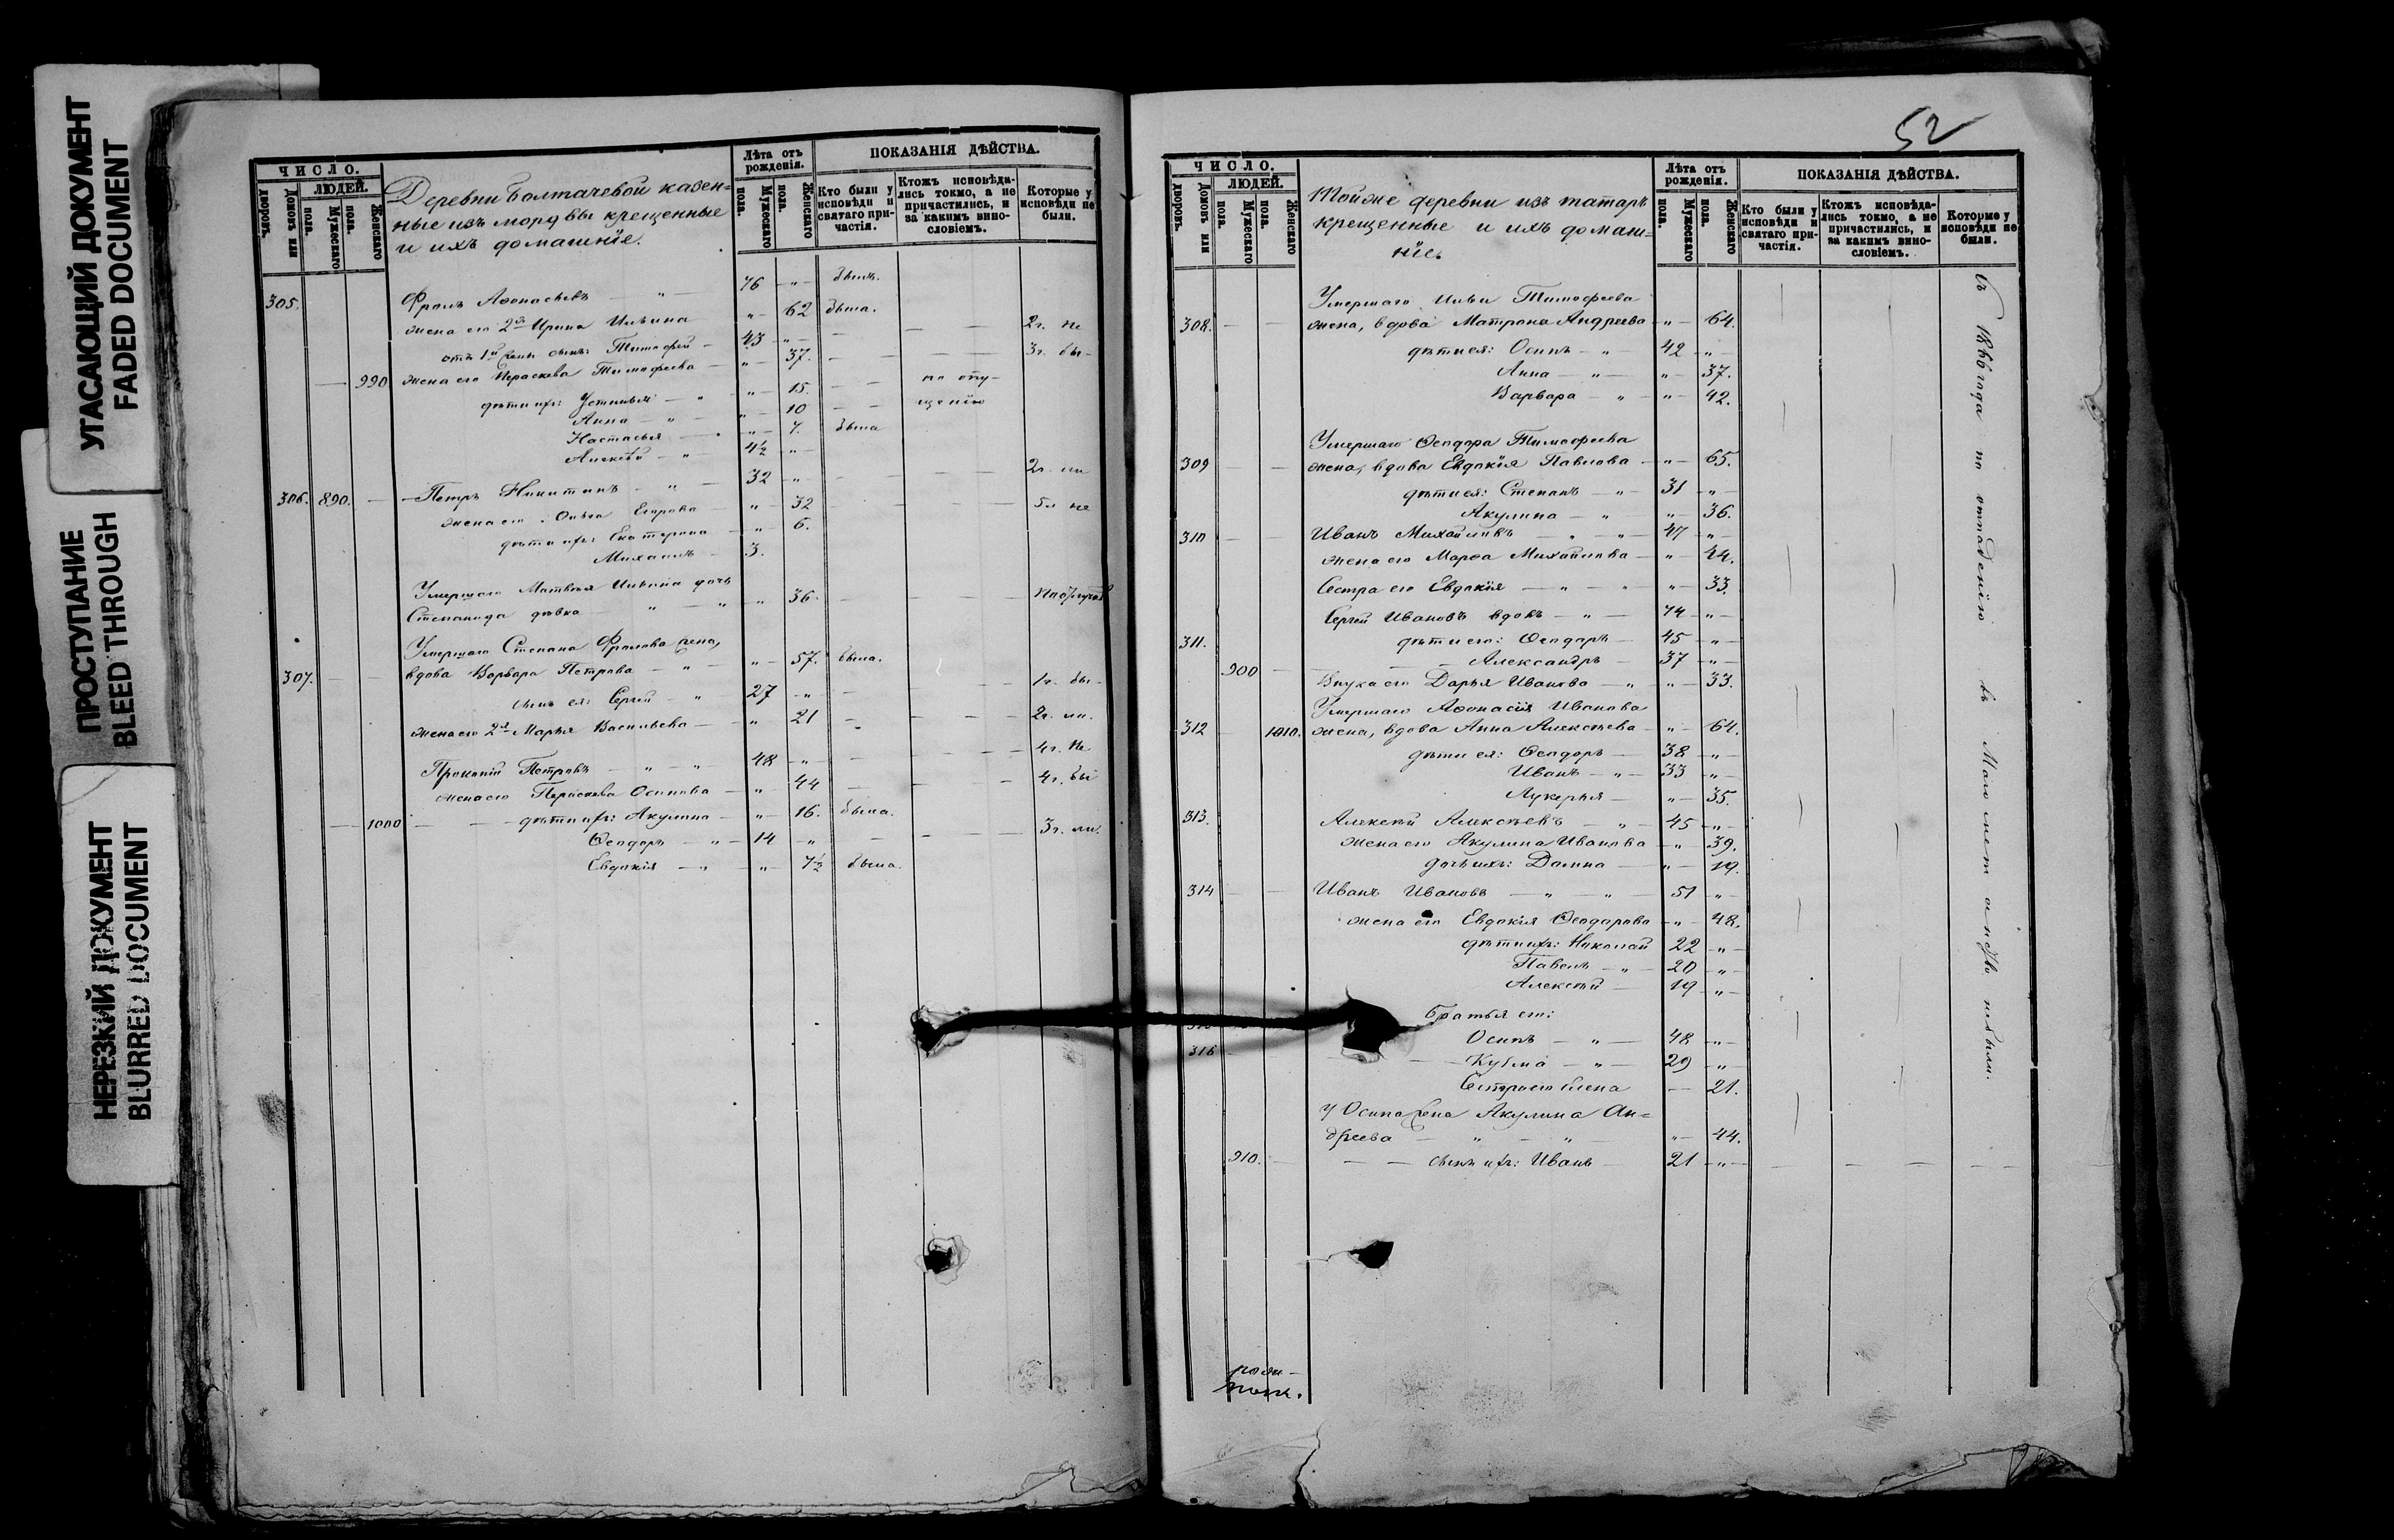 УГАСАЮЩИЙ ДОКУМЕНТ
FADED DOCUMENT
ПРОСТУПАНИЕ
BLEED THROUGH
НЕРЕЗКИЙ ДОКУМЕНТ
BLURRED DOCUMENT
ЧИСЛО.
ЛЮДЕЙ.
Домовъ или дворовъ.
Мужескаго пола.
Женскаго пола.
Деревни Болтачевой казен=
ные изъ мордвы крещенные
и ихъ домашніе.
Лѣта отъ рожденія.
Мужескаго пола.
Женскаго пола.
ПОКАЗАНІЯ ДѢЙСТВА.
Кто были у исповѣди и святаго причастія.
Ктожъ исповѣдались токмо, а не причастились, и за какимъ винословіемъ.
Которые у исповѣди не были.
305. Фролъ Аѳонасьевъ — " — 76 — " — былъ.
жена его 2я Ирина Ильина " — 62 была.
отъ 1й жены сынъ: Тимофей — 43 — " — 2г. не
990 жена его Параскева Тимофеева — " — 37. — 3г. бы-
дѣти ихъ: Устинья — " — " — 15. — по опу-
Анна — " — " — 10 — щенію
Настасья — " — 7. была
Алексѣй — " 4½ — "
306. 890. — Петръ Никитинъ — " — 32 — " — 2г. ли
жена его Ольга Егорова — " — 32 — 5л не
дѣти ихъ: Екатерина — " — 6.
Михаилъ — 3.
Умершаго Матвѣя Ильина дочь
Степанида дѣвка — " — " — " — 36. —
Умершаго Степана Фролова жена,
307. — вдова Варвара Петрова — " — " — 57. была.
сынъ ея: Сергѣй — " 27 — " — 1г. бы-
жена его 2я Марья Васильева — " 21 — 2г. ли.
Прокопій Петровъ — " — " — 48 — " — 4г. не
жена его Параскева Осипова — " — 44 — 4г. бы
1000 — дѣти ихъ: Акулина — " — 16. была.
Ѳеодоръ — " — 14 — " — 3г. ли.
Евдокія — " — " — 7½ была.
52
ЧИСЛО.
ЛЮДЕЙ.
Домовъ или дворовъ.
Мужескаго пола.
Женскаго пола.
Тойже деревни изъ татаръ
крещенные и ихъ домаш=
ніе.
Лѣта отъ рожденія.
Мужескаго пола.
Женскаго пола.
ПОКАЗАНІЯ ДѢЙСТВА.
Кто были у исповѣди и святаго причастія.
Ктожъ исповѣдались токмо, а не причастились, и за какимъ винословіемъ.
Которые у исповѣди не были.
Умершаго Ильи Тимофеева
308. — жена, вдова Матрона Андреева — " — 64.
дѣти ея: Осипъ — " — 42 — "
Анна — " — " — 37.
Варвара — " — " — 42.
Умершаго Ѳеодора Тимофеева
309 — жена, вдова Евдокія Павлова — " — 65.
дѣти ея: Степанъ — " — 31 — "
Акулина — " — " — 36.
310 — Иванъ Михайловъ — " — " 47 — "
жена его Марѳа Михайлова — " — 44.
Сестра его Евдокія — " — " " — 33.
Сергѣй Ивановъ вдовъ — " — 74 — "
311. дѣти его: Ѳеодоръ — 45 — "
900 — Александръ — 37 — "
Внука его Дарья Иванова — " " — 33.
Умершаго Аѳонасія Иванова
312 — 1010. жена, вдова Анна Алексѣева — " — 64.
дѣти ея: Ѳеодоръ — 38 — "
Иванъ — " — 33 — "
Лукерья — " — 35.
313. Алексѣй Алексѣевъ — " — 45 — "
жена его Акулина Иванова — " 39.
дочь ихъ: Домна — " — 19.
314 — Иванъ Ивановъ — " — " — 51 "
жена его Евдокія Ѳеодорова — " — 48.
дѣти ихъ: Николай 22 — "
Павелъ — " — 20 — "
Алексѣй — 19 — "
Братья его:
Осипъ — " — 48 — "
316 — Кузма — " — 29 — "
Сестра его Елена — 21.
У Осипа жена Акулина Ан=
дреева — " — " " — 44.
910. — сынъ ихъ: Иванъ — 21 — "
Съ 1866 года по отпаденію въ Магометанизмъ небыли.